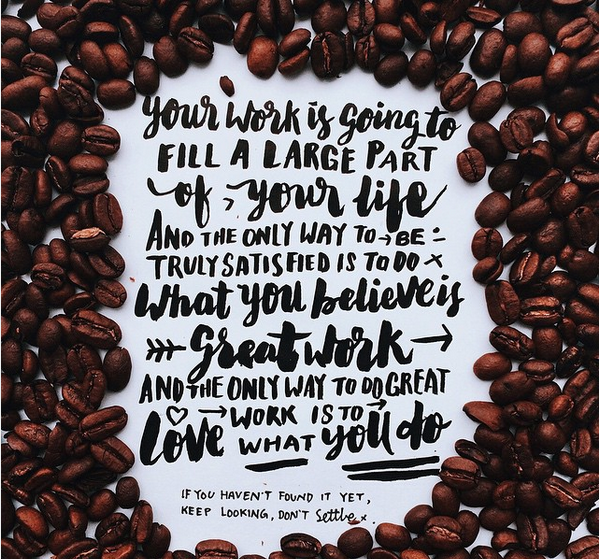 Your work is going to
FILL A LARGE PART
of your life
AND THE ONLY WAY TO BE
TRULY SATISFIED IS TO DO
What you believe is
Great work
AND THE ONLY WAY TO DO GREAT
WORK IS TO
Love WHAT you do
IF YOU HAVEN'T FOUND IT YET,
KEEP LOOKING, DON'T Settle x.